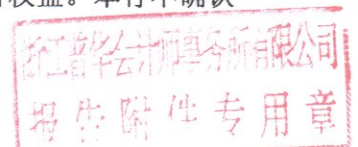 权益。本行不确认
浙江普华会计师事务所有限公司
报告附件专用章